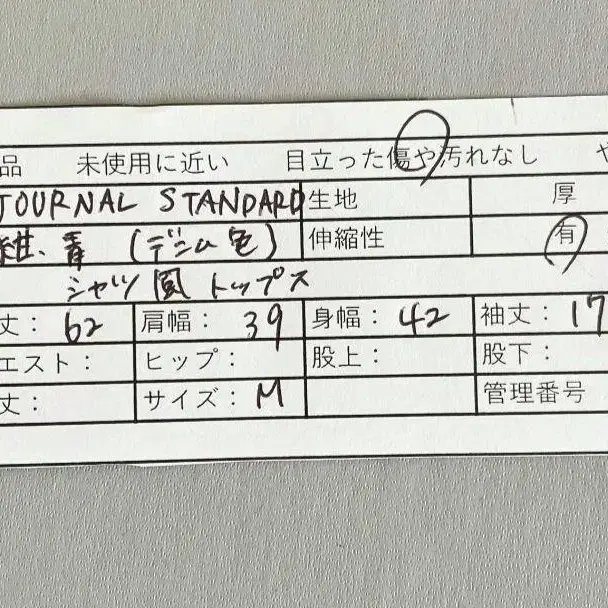 品 未使用に近い 目立った傷や汚れなし や
JOURNAL STANDARD 生地 厚
紺、青 (デニム色) 伸縮性 有
シャツ風トップス
丈: 62 肩幅: 39 身幅: 42 袖丈: 17
エスト: ヒップ: 股上: 股下:
丈: サイズ: M 管理番号